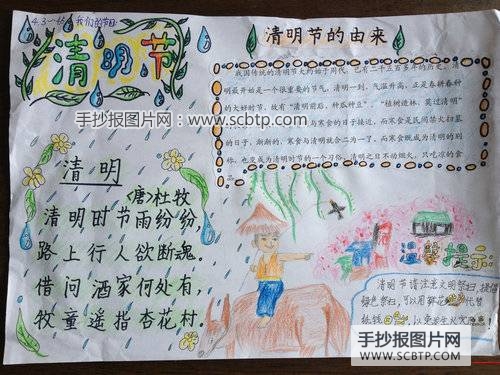 4.3~4.5 我们的节日
清明节
清明节的由来
我国传统的清明节大约始于周代，已有二千五百多年的历史。清
明最开始是一个很重要的节气，清明一到，气温升高，正是春耕春种
的大好时节，故有“清明前后，种瓜种豆”。“植树造林，莫过清明”
与寒食的日子接近，而寒食是民间禁火扫墓
的日子，渐渐的，寒食与清明就合二为一了，而寒食既成为清明的别
称，也变成为清明时节的一个习俗，清明之日不动烟火，只吃凉的食
品。
手抄报图片网：www.scbtp.com
清明
〈唐〉杜牧
清明时节雨纷纷，
路上行人欲断魂。
借问酒家何处有，
牧童遥指杏花村。
温馨提示：
清明节请注意文明祭扫，提倡
绿色祭扫，可以用鲜花代替
纸钱，以免发生火灾
手抄报图片网
WWW.SCBTP.COM